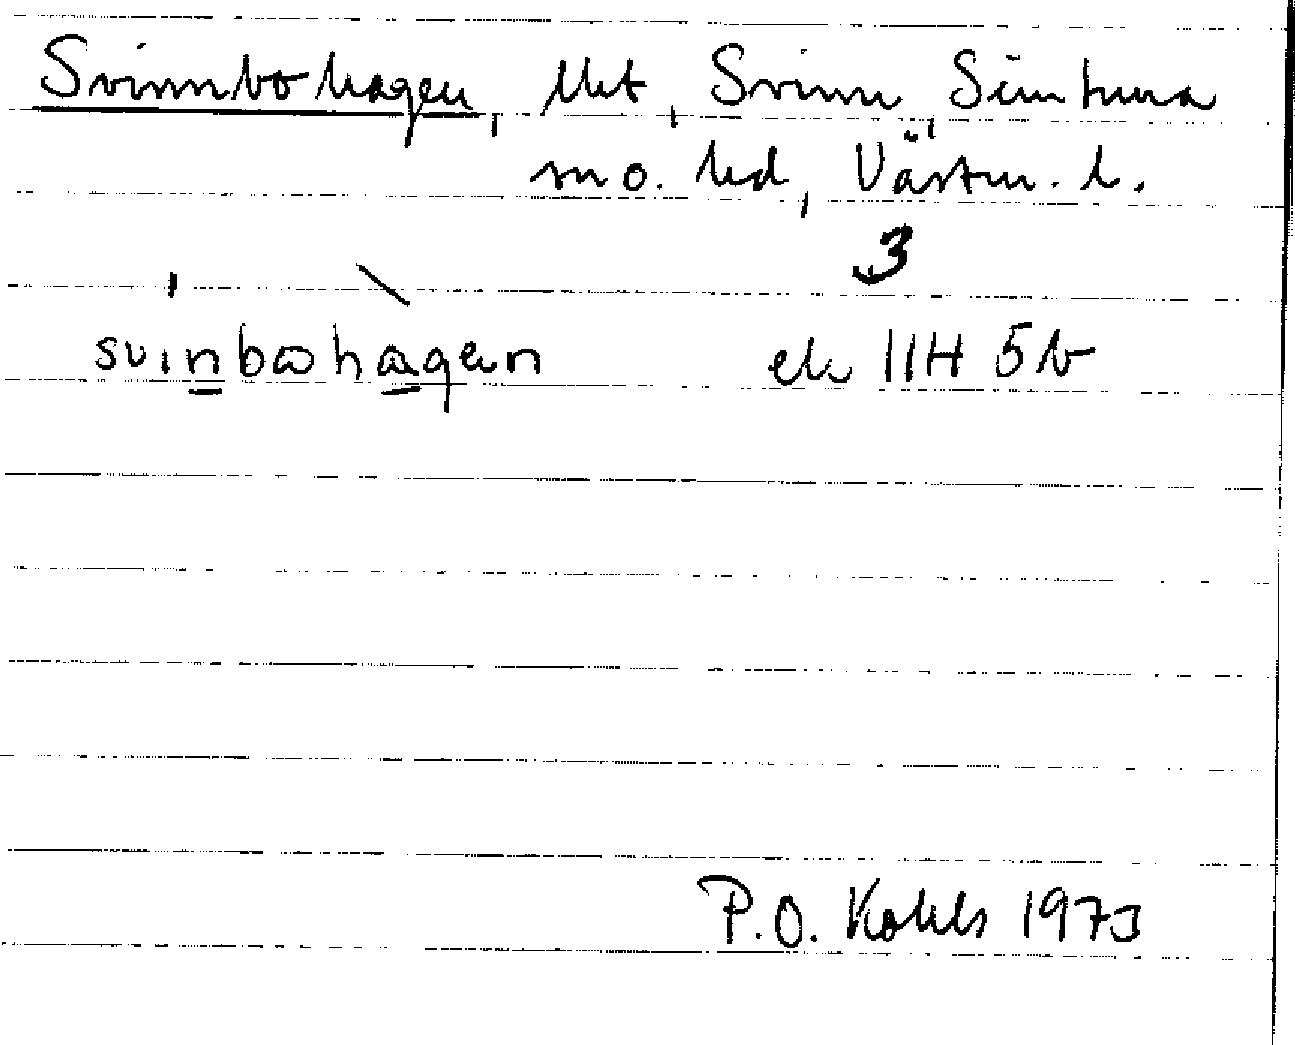 Svinnbohagen, Mkt, Svinn, Simtuna
sn o. hd, Västm. l.
3
svinbohagen ek 11H 5b
P.O. Kohls 1973